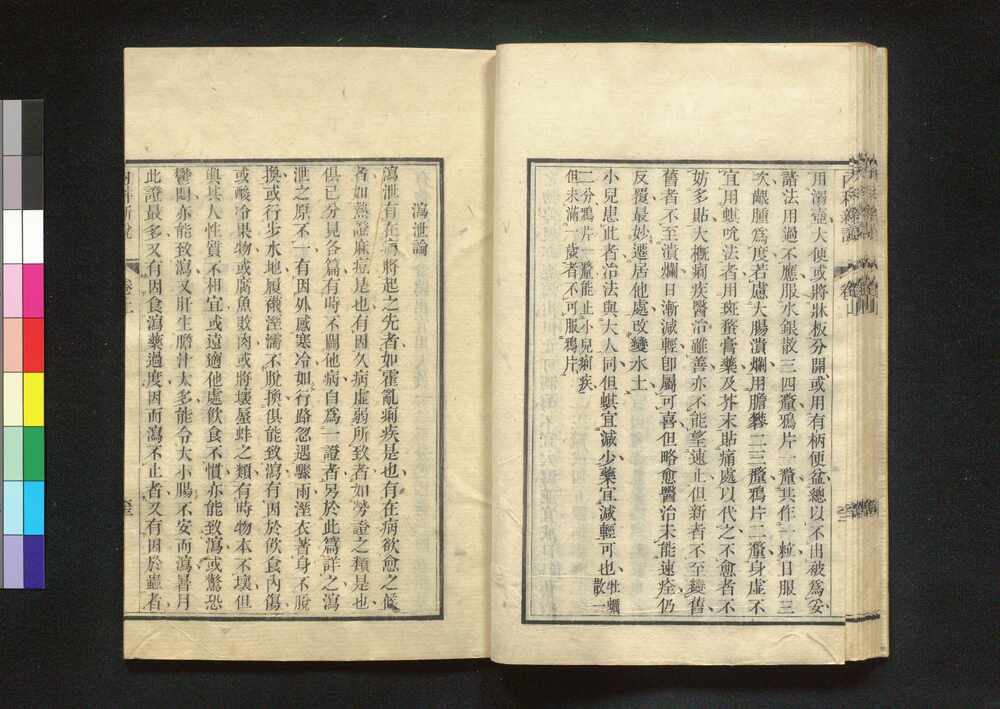 用溺壺大便或將牀板分開或用有柄便盆總以不出被爲妥
諸法用過不應服水銀散三四釐鴉片一釐共作一粒日服三
次齦腫爲度若慮大腸潰爛用膽礬二三釐鴉片二釐身虛不
宜用蜞吮法者用斑蝥膏藥及芥末貼痛處以代之不愈者不
妨多貼大概痢疾醫治雖善亦不能望速止但新者不至變舊
舊者不至潰爛日漸減輕卽屬可喜但略愈醫治未能速痊仍
反覆最妙遷居他處改變水土
小兒患此者治法與大人同但蜞宜減少藥宜減輕可也牡蠣散一
二分鴉片一釐能止小兒痢疾
但未滿一歲者不可服鴉片
瀉泄論
瀉泄有在病將起之先者如霍亂痢疾是也有在病欲愈之候
者如熱證麻痘是也有因久病虛弱所致者如勞證之類是也
俱已分見各篇有時不關他病自爲一證者另於此篇詳之瀉
泄之原不一有因外感寒冷如行路忽遇驟雨溼衣著身不脫
換或行步水地履襪溼濡不脫換俱能致瀉有因於飲食內傷
或酸冷果物或腐魚敗肉或將壞蜃蚌之類有時物本不壞但
與其人性質不相宜或遠適他處飲食不慣亦能致瀉或驚恐
鬱悶亦能致瀉又肝生膽汁太多能令大小腸不安而瀉暑月
此證最多又有因食瀉藥過度因而瀉不止者又有因於蟲者
內科新說
卷上